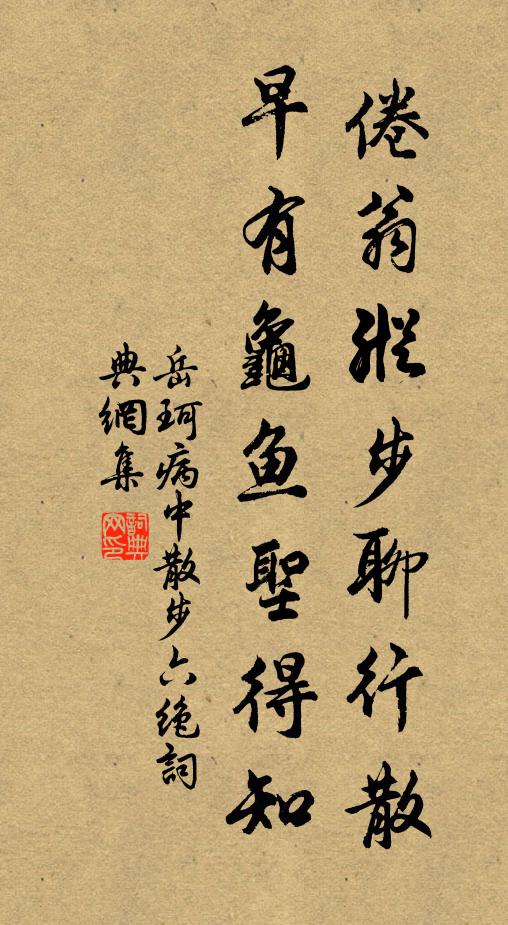 倦翁縱步聊行散
早有龜魚聖得知
岳珂病中散步六絶詞
典網集
詞典网印